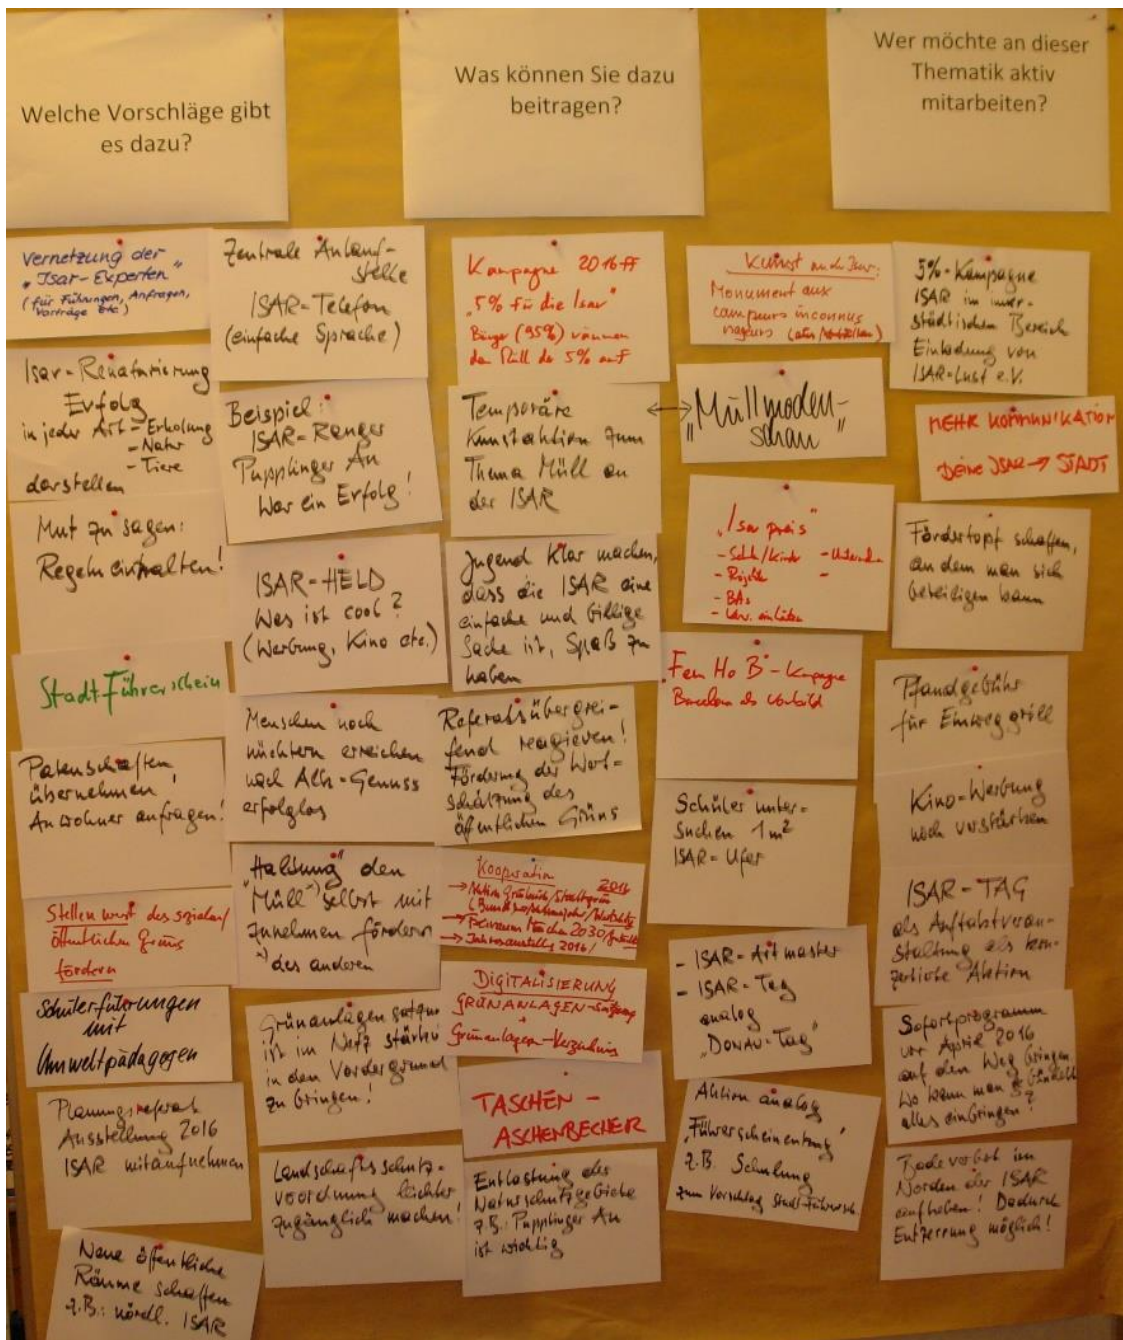 Welche Vorschläge gibt
es dazu?
Was können Sie dazu
beitragen?
Wer möchte an dieser
Thematik aktiv
mitarbeiten?
Vernetzung der
"Isar-Experten"
(für Führungen, Anfragen,
Vorträge etc)
Isar-Renaturierung
Erfolg
in jeder Art - Erholung
- Natur
- Tiere
darstellen
Mut zu sagen:
Regeln einhalten!
Stadt-Führerschein
Patenschaften
übernehmen,
Anwohner anfragen!
Stellenwert des sozialen/
öffentlichen Grüns
fördern
Schülerführungen
mit
Umweltpädagogen
Planungsreferat
Ausstellung 2016
ISAR mitaufnehmen
Neue öffentliche
Räume schaffen
z.B.: nördl. ISAR
Zentrale Anlauf-
stelle
ISAR-Telefon
(einfache Sprache)
Beispiel:
ISAR-Ranger
Pupplinger Au
War ein Erfolg!
ISAR-HELD
Was ist cool?
(Werbung, Kino etc.)
Menschen noch
nüchtern erreichen
nach Alk-Genuss
erfolglos
"Haltung" den
"Müll" selbst mit
zunehmen fördern
*) des anderen
Grünanlagensatzung
ist im Netz stärker
in den Vordergrund
zu bringen!
Landschaftsschutz-
verordnung leichter
zugänglich machen!
Kampagne 2016 ff
"5% für die Isar"
Bürger (95%) räumen
den Müll der 5% auf
Temporäre
Kunstaktion zum
Thema Müll an
der ISAR
Jugend klar machen,
dass die ISAR eine
einfache und billige
Sache ist, Spaß zu
haben
Referatsübergrei-
fend reagieren!
Förderung der Wert-
schätzung des
öffentlichen Grüns
Kooperation
2016
→ Freiraum München 2030
→ Jahresausstellg 2016/
DIGITALISIERUNG
GRÜNANLAGEN-Satzung
+
Grünanlagen-Verzeichnis
TASCHEN-
ASCHENBECHER
Entlastung der
Naturschutzgebiete
z.B.: Pupplinger Au
ist wichtig
Kunst an der Isar:
Monument aux
campeurs inconnus
nageurs
"Müllmoden-
schau"
"Isarpreis"
- Schule/Kinder
- Projekte
- BAs
"Fen Ho B"-Kampagne
Barcelona als Vorbild
Schüler unter-
suchen 1m²
ISAR-Ufer
- ISAR-Art master
- ISAR-Tag
analog
"DONAU-Tag"
Aktion analog
"Führerscheinentzug"
z.B. Schulung
zum Vorschlag Stadt-Führersch.
5%-Kampagne
ISAR im inner-
städtischen Bereich
Einladung von
ISAR-Lust e.V.
MEHR KOMMUNIKATION
DEINE ISAR → STADT
Fördertopf schaffen,
an dem man sich
beteiligen kann
Pfandgebühr
für Einweggrill
Kino-Werbung
noch verstärken
ISAR-TAG
als Auftaktveran-
staltung als kon-
zertierte Aktion
Sofortprogramm
vor April 2016
auf den Weg bringen
Wo kann man gebündelt
alles einbringen?
Badeverbot im
Norden der ISAR
aufheben! Dadurch
Entzerrung möglich!